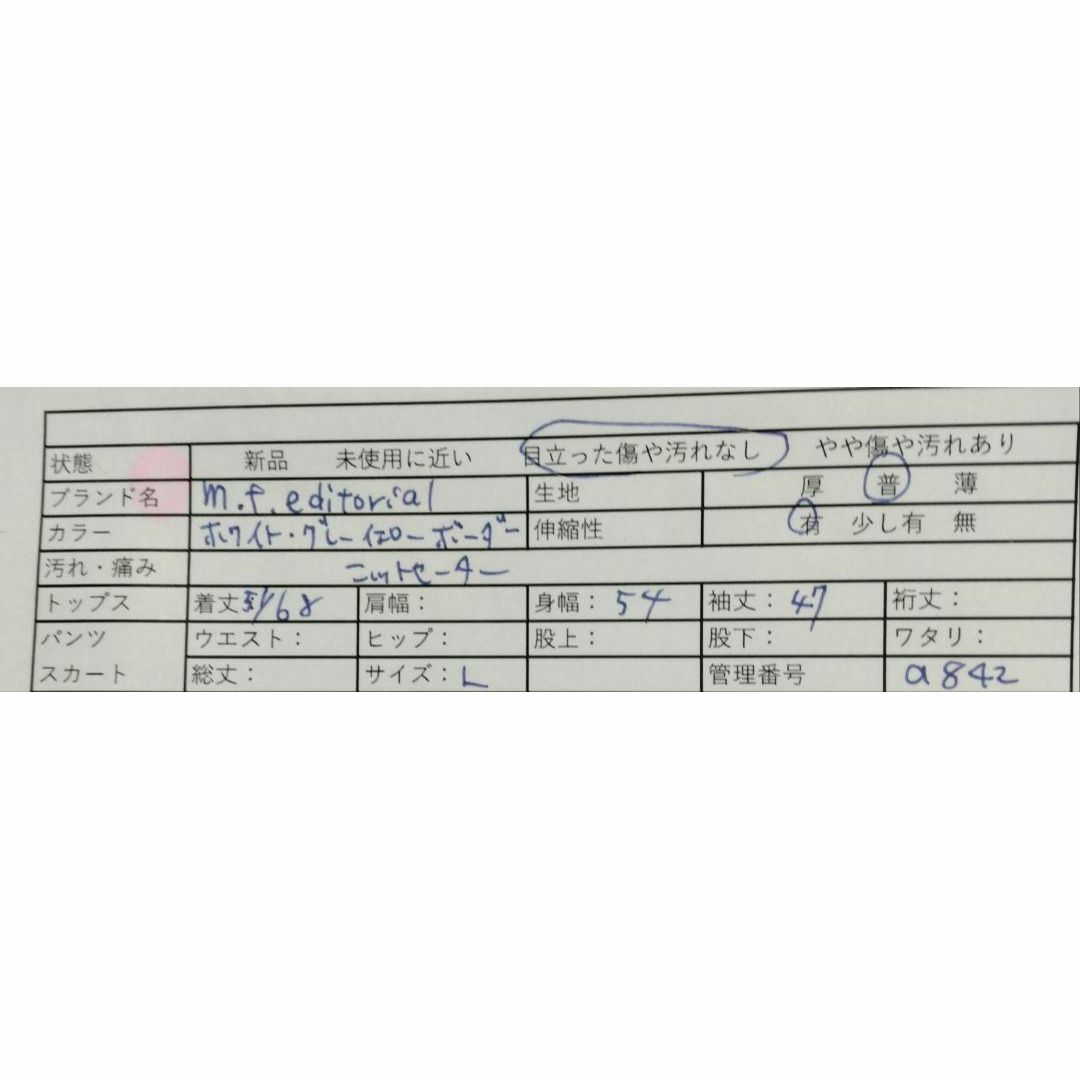 状態 新品 未使用に近い 目立った傷や汚れなし やや傷や汚れあり
ブランド名 m.f.editorial 生地 厚 普 薄
カラー ホワイト・グレーイエローボーダー 伸縮性 有 少し有 無
汚れ・痛み ニットセーター
トップス 着丈 68 肩幅： 身幅：54 袖丈：47 裄丈：
パンツ ウエスト： ヒップ： 股上： 股下： ワタリ：
スカート 総丈： サイズ：L 管理番号 a842